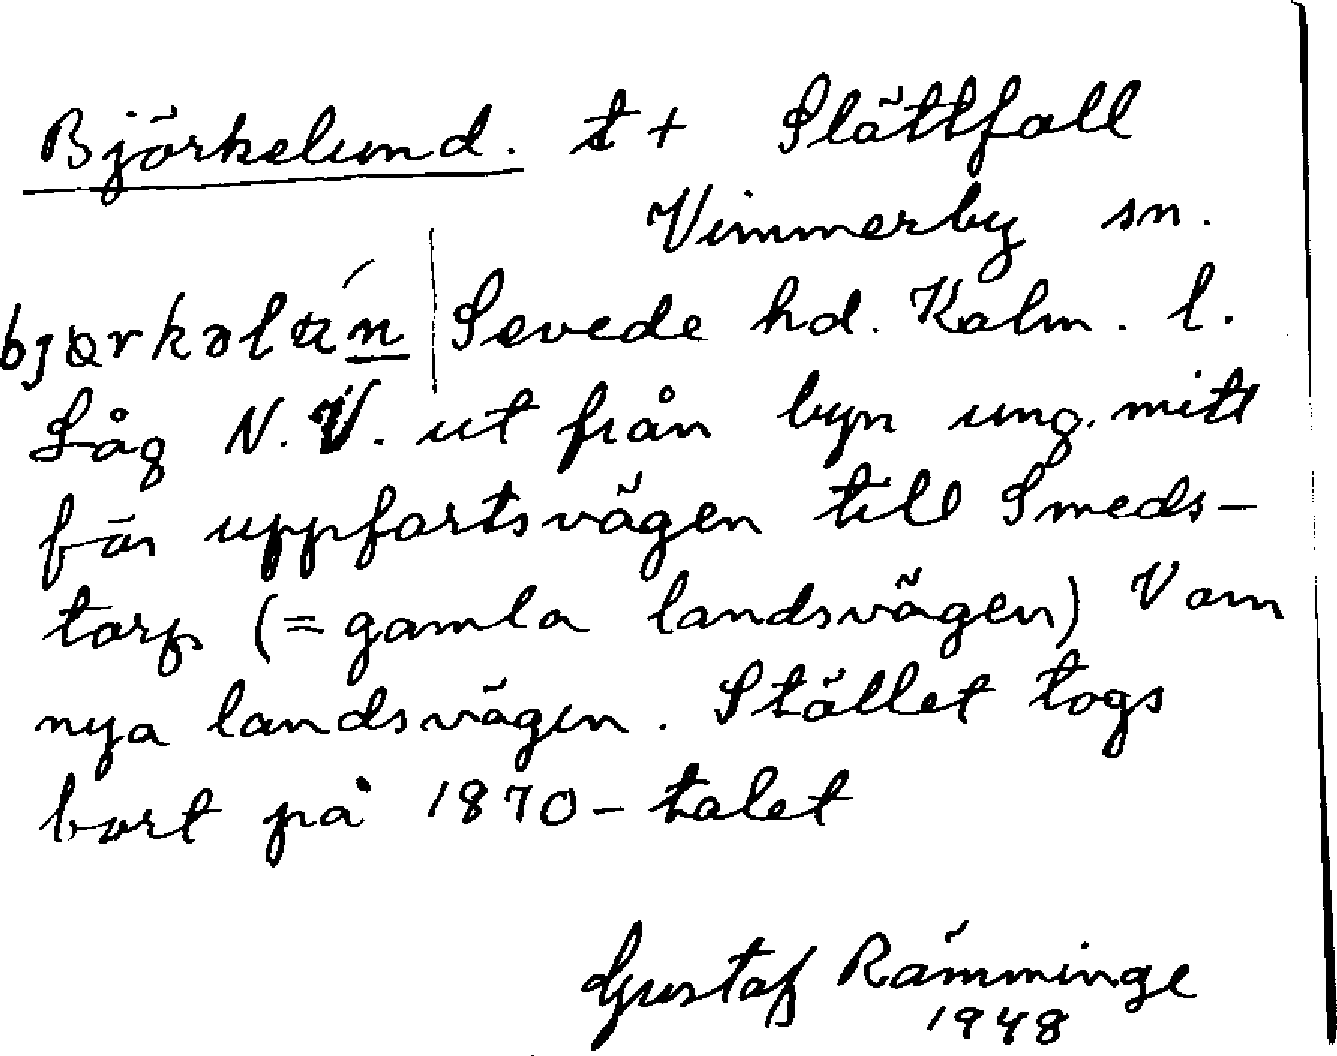 Björkelund. t + Slättfall
Vimmerby sn.
Sevede hd. Kalm. l.
Låg N.V. ut från byn ung. mitt
för uppfartsvägen till Smeds-
torp (= gamla landsvägen) V om
nya landsvägen. Stället togs
bort på 1870-talet
Gustaf Rämminge
1948